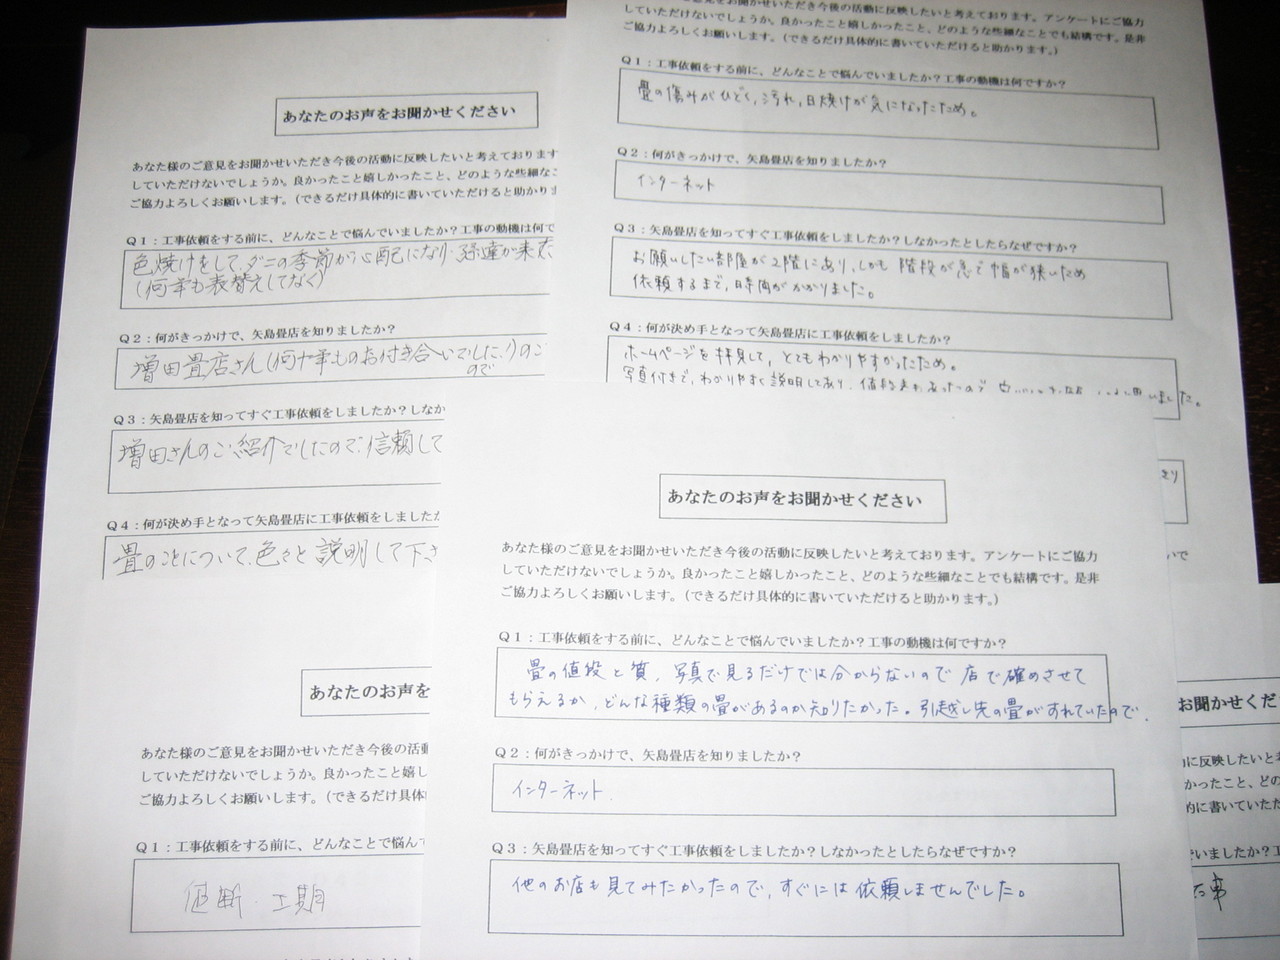 あなたのお声をお聞かせください
あなた様のご意見をお聞かせいただき今後の活動に反映したいと考えております
していただけないでしょうか。良かったこと嬉しかったこと、どのような些細なこ
ご協力よろしくお願いします。（できるだけ具体的に書いていただけると助かりま
Q1：工事依頼をする前に、どんなことで悩んでいましたか？工事の動機は何で
色焼けをして、ダニの季節から心配になり、孫達が来た
(何年も表替えしてなく)
Q2：何がきっかけで、矢島畳店を知りましたか？
増田畳店さん(何十年ものお付き合いでした!)のご
ので
Q3：矢島畳店を知ってすぐ工事依頼をしましたか？しなか
増田さんのご紹介でしたので、信頼して
Q4：何が決め手となって矢島畳店に工事依頼をしましたか
畳のことについて、色々と説明して下さ
あなたのお声を
あなた様のご意見をお聞かせいただき今後の活動
していただけないでしょうか。良かったこと嬉し
ご協力よろしくお願いします。（できるだけ具体
Q1：工事依頼をする前に、どんなことで悩んで
値断・工期
協力よろしくお願いします。（できるだけ具体的に書いていただけると助かります。）
を聞かせいただき今後の活動に反映したいと考えております。アンケートにご協力
していただけないでしょうか。良かったこと嬉しかったこと、どのような些細なことでも結構です。是非
Q1：工事依頼をする前に、どんなことで悩んでいましたか？工事の動機は何ですか？
畳の傷みがひどく、汚れ、日焼けが気になったため。
Q2：何がきっかけで、矢島畳店を知りましたか？
インターネット
Q3：矢島畳店を知ってすぐ工事依頼をしましたか？しなかったとしたらなぜですか？
お願いしたい部屋が2階にあり、しかも階段が急で幅が狭いため
依頼するまで、時間がかかりました。
Q4：何が決め手となって矢島畳店に工事依頼をしましたか？
ホームページを拝見して、とてもわかりやすかったため。
写真付きで、わかりやすく説明してあり、値段もあったので
あなたのお声をお聞かせください
あなた様のご意見をお聞かせいただき今後の活動に反映したいと考えております。アンケートにご協力
していただけないでしょうか。良かったこと嬉しかったこと、どのような些細なことでも結構です。是非
ご協力よろしくお願いします。（できるだけ具体的に書いていただけると助かります。）
Q1：工事依頼をする前に、どんなことで悩んでいましたか？工事の動機は何ですか？
畳の値段と質、写真で見るだけでは分からないので店で確めさせて
もらえるか、どんな種類の畳があるのか知りたかった。引越し先の畳がすれていたので。
Q2：何がきっかけで、矢島畳店を知りましたか？
インターネット
Q3：矢島畳店を知ってすぐ工事依頼をしましたか？しなかったとしたらなぜですか？
他のお店も見てみたかったので、すぐには依頼しませんでした。
お聞かせくだ
に反映したいと
かったこと、どの
的に書いていただ
でいましたか？工